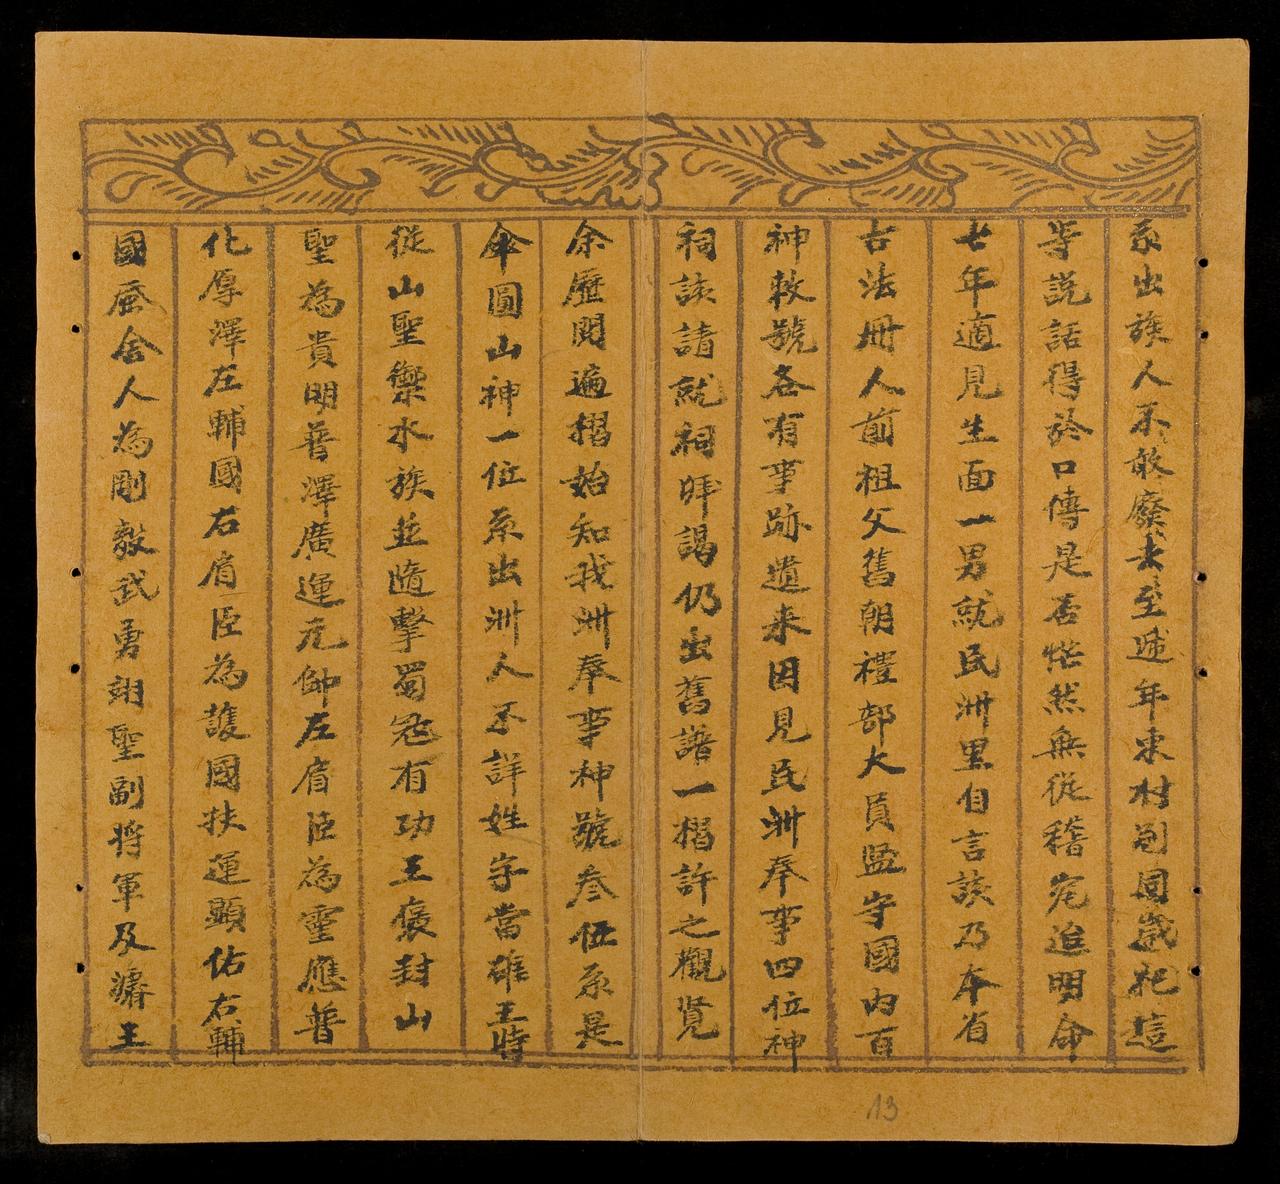 系出族人不敢廢去至逓年東村同歲祀這
等說話得於口傳是否恍然無從稽究迨明命
七年適見生面一男就民洲里自言該乃本省
古法册人前祖父舊朝禮部大員監守國內百
神敕號各有事跡遺来因見民洲奉事四位神
祠該請就祠拜謁仍出舊譜一摺許之觀覽
余歷閱遍摺始知我洲奉事神號叁伍系是
傘圓山神一位系出洲人不詳姓字當雄王時
從山聖禦水族並隨擊蜀寇有功王褒封山
聖為貴明普澤廣運元帥左肩臣為靈應普
化厚澤左輔國右肩臣為護國扶運顯佑右輔
國舍人為剛毅武勇翊聖副将軍及王
13